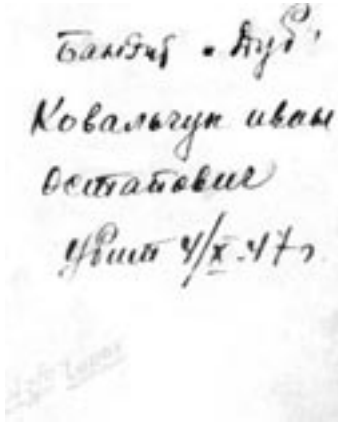 Бандит "Дуб"
Ковальчук иван
Остапович
убит 4/X-47 г